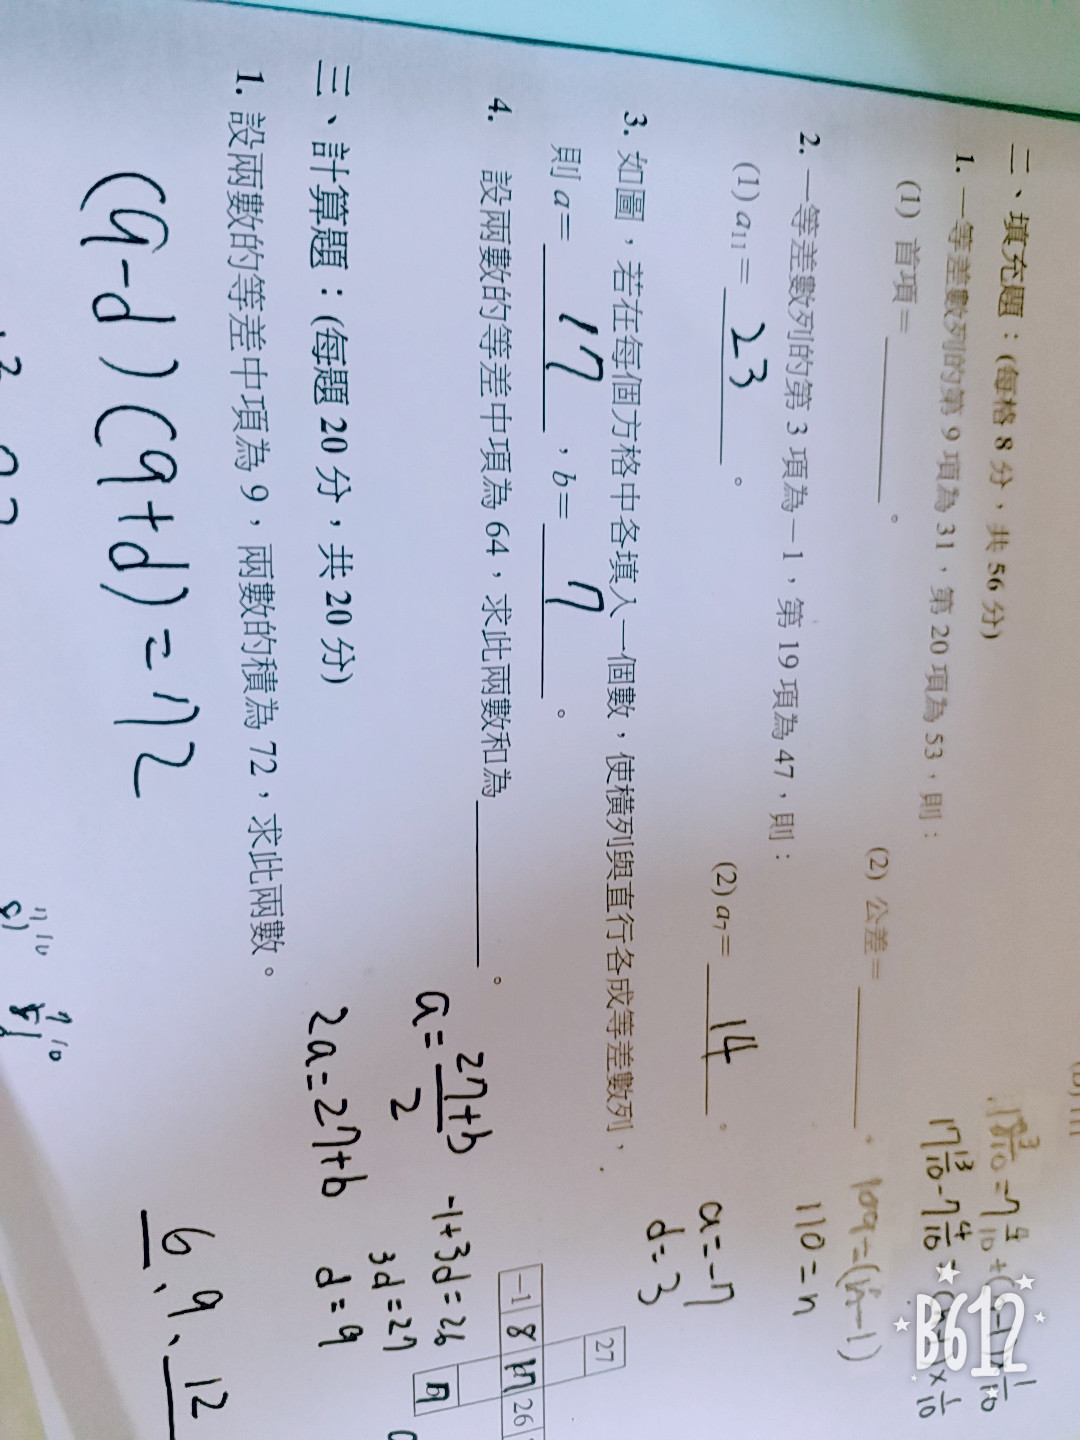 二、填充題：(每格 8 分，共 56 分)
1. 一等差數列的第 9 項為 31，第 20 項為 53，則：
(1) 首項＝＿＿＿。 (2) 公差＝＿＿＿。
2. 一等差數列的第 3 項為－1，第 19 項為 47，則：
(1) a11＝ 23 。 (2) a7＝ 14 。
110=n
a=-7
d=3
3. 如圖，若在每個方格中各填入一個數，使橫列與直行各成等差數列，
則 a＝ 17 ，b＝ 7 。
27
-1 8 17 26
7
4. 設兩數的等差中項為 64，求此兩數和為＿＿＿。
a=27+b/2
2a=27+b
-1+3d=26
3d=27
d=9
三、計算題：(每題 20 分，共 20 分)
1. 設兩數的等差中項為 9，兩數的積為 72，求此兩數。
(9-d)(9+d)=72
6、9、12
B612